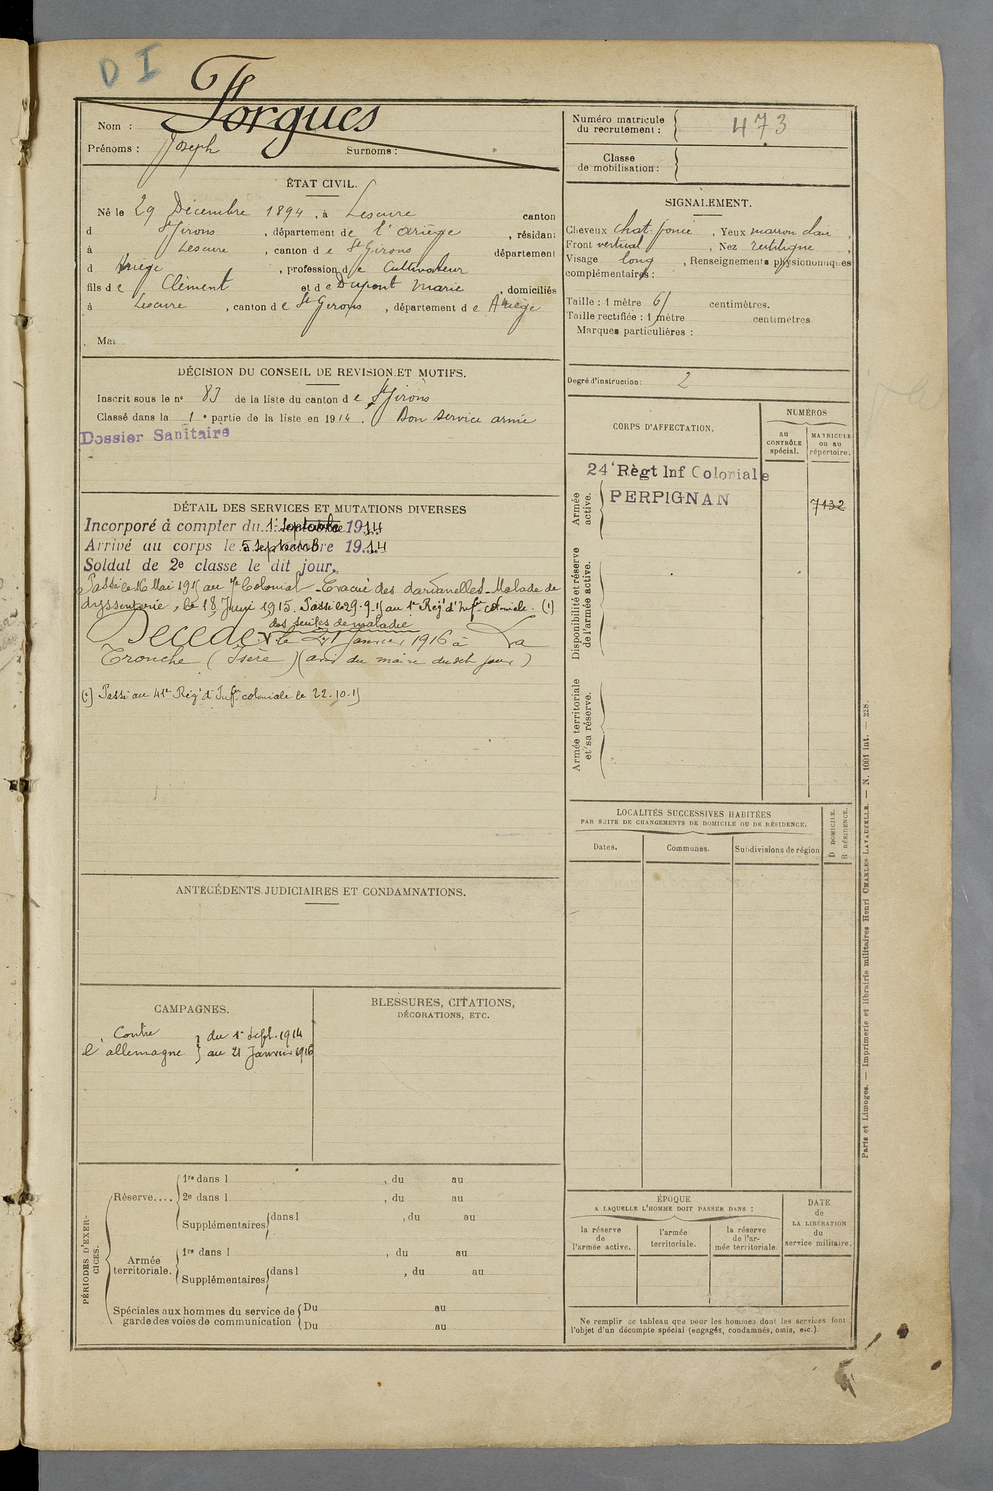 D I
Nom : Forgues
Prénoms : Joseph Surnoms :
ÉTAT CIVIL.
Né le 29 Décembre 1894, à Lescure canton
d St Girons, département de l'ariège, résidant
à Lescure, canton de St Girons département
d Ariège, profession de Cultivateur
fils de Clément et de Dupont Marie, domiciliés
à Lescure, canton de St Girons, département de Ariège
Mar
DÉCISION DU CONSEIL DE REVISION ET MOTIFS.
Inscrit sous le n° 83 de la liste du canton de St Girons
Classé dans la 1e partie de la liste en 1914. Bon service armé
Dossier Sanitaire
DÉTAIL DES SERVICES ET MUTATIONS DIVERSES
Incorporé à compter du 1er Septembre 1914
Arrivé au corps le 5 Septembre 1914
Soldat de 2e classe le dit jour.
Passé le 16 Mai 1915 au 7e Colonial - Evacué des dardanelles - Malade de
dyssenterie, le 18 Juin 1915. Passé le 29-9-15 au 1er Rég' d'Inf. coloniale. (1)
des suites de maladie
Décédé le 21 Janvier 1916 à La
Tronche (Isère) (avis du maire du sch jour)
(1) Passé au 41e Rég' d'Inf. coloniale le 22-10-15
ANTÉCÉDENTS JUDICIAIRES ET CONDAMNATIONS.
CAMPAGNES.
Contre l'allemagne } du 1er Sept. 1914
au 21 Janvier 1916
BLESSURES, CITATIONS,
DÉCORATIONS, ETC.
PÉRIODES D'EXERCICES.
Réserve.... 1re dans l , du au
2e dans l , du au
Supplémentaires dans l , du au
Armée territoriale. 1re dans l , du au
Supplémentaires dans l , du au
Spéciales aux hommes du service de Du au
garde des voies de communication Du au
Numéro matricule
du recrutement : 473
Classe
de mobilisation :
SIGNALEMENT.
Cheveux chat. foncé, Yeux marron clair,
Front vertical, Nez rectiligne,
Visage long, Renseignements physionomiques
complémentaires :
Taille : 1 mètre 61 centimètres.
Taille rectifiée : 1 mètre centimètres
Marques particulières :
Degré d'instruction : 2
CORPS D'AFFECTATION.
NUMÉROS
au
CONTRÔLE
spécial.
MATRICULE
OU AU
répertoire.
Armée
active.
24e Règt Inf Coloniale
PERPIGNAN
7132
Disponibilité et réserve
de l'armée active.
Armée territoriale
et sa réserve.
LOCALITÉS SUCCESSIVES HABITÉES
PAR SUITE DE CHANGEMENTS DE DOMICILE OU DE RÉSIDENCE.
Dates.
Communes.
Subdivisions de région
D DOMICILE.
R RÉSIDENCE.
ÉPOQUE
A LAQUELLE L'HOMME DOIT PASSER DANS :
la réserve
de
l'armée active.
l'armée
territoriale.
la réserve
de l'ar-
mée territoriale.
DATE
de
LA LIBÉRATION
du
service militaire.
Ne remplir ce tableau que pour les hommes dont les services font
l'objet d'un décompte spécial (engagés, condamnés, omis, etc.).
Paris et Limoges. — Imprimerie et librairie militaires Henri CHARLES-LAVAUZELLE. — N. 1001 int. — 228.